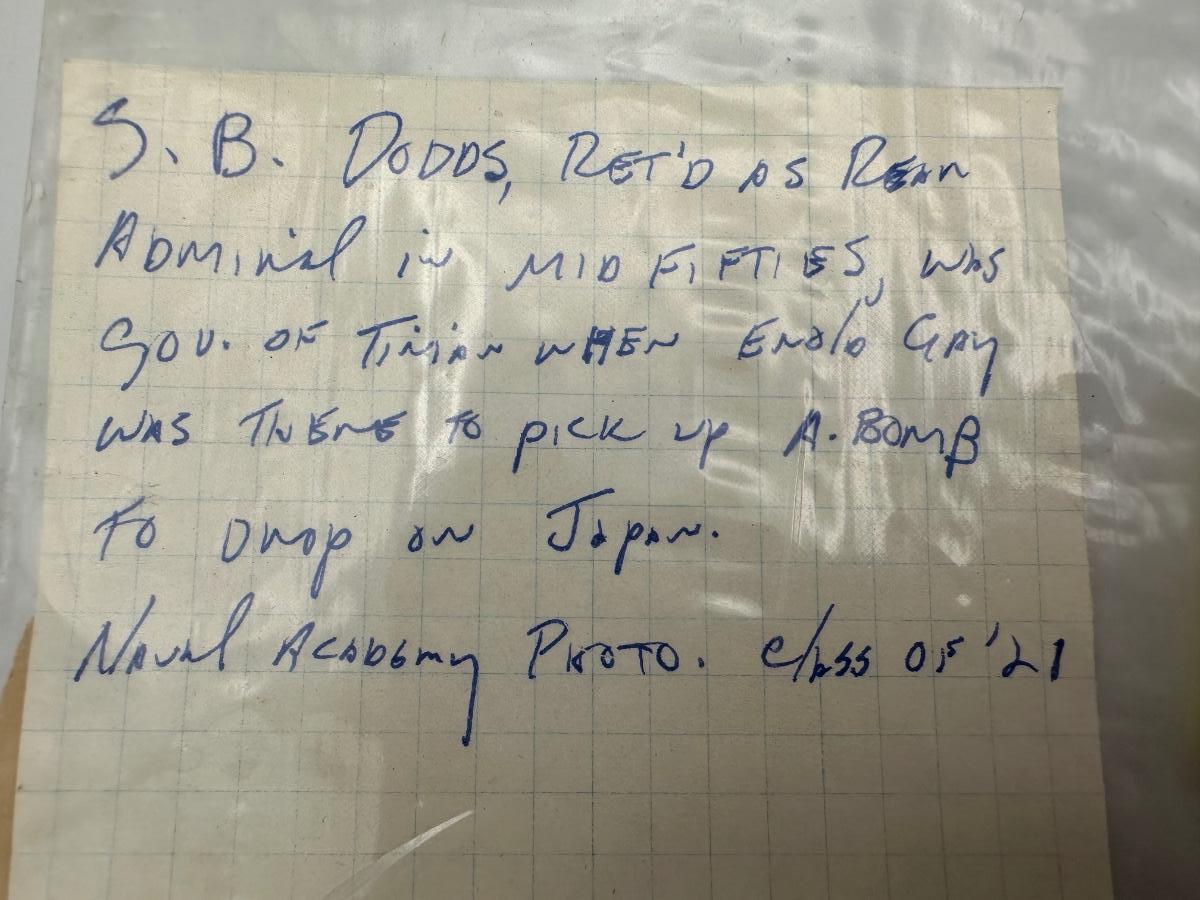 S. B. DODDS, RET'D AS REAR
ADMIRAL in MID FIFTIES, WAS
GOV. OF TINIAN WHEN ENOLA GAY
WAS THERE TO PICK UP A. BOMB
TO DROP ON JAPAN.
NAVAL ACADEMY PHOTO. Class OF '21